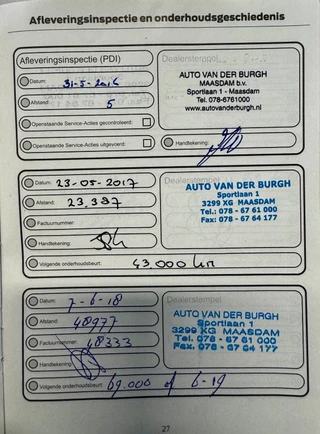 Afleveringsinspectie en onderhoudsgeschiedenis
Afleveringsinspectie (PDI)
Dealerstempel
Datum: 31-5-2016
Afstand: 5
Openstaande Service-Acties gecontroleerd:
Openstaande Service-Acties uitgevoerd:
AUTO VAN DER BURGH
MAASDAM b.v.
Sportlaan 1 - Maasdam
Tel. 078-6761000
www.autovanderburgh.nl
Handtekening:
Datum: 23-05-2017
Afstand: 23.387
Factuurnummer:
Handtekening:
Volgende onderhoudsbeurt: 43.000 km
Dealerstempel
AUTO VAN DER BURGH
Sportlaan 1
3299 XG MAASDAM
Tel.: 078 - 67 61 000
Fax: 078 - 67 64 177
Datum: 7-6-18
Afstand: 48977
Factuurnummer: 48333
Handtekening:
Volgende onderhoudsbeurt: 69.000 of 6-19
Dealerstempel
AUTO VAN DER BURGH
Sportlaan 1
3299 XG MAASDAM
Tel.: 078 - 67 61 000
Fax.: 078 - 67 64 177
27